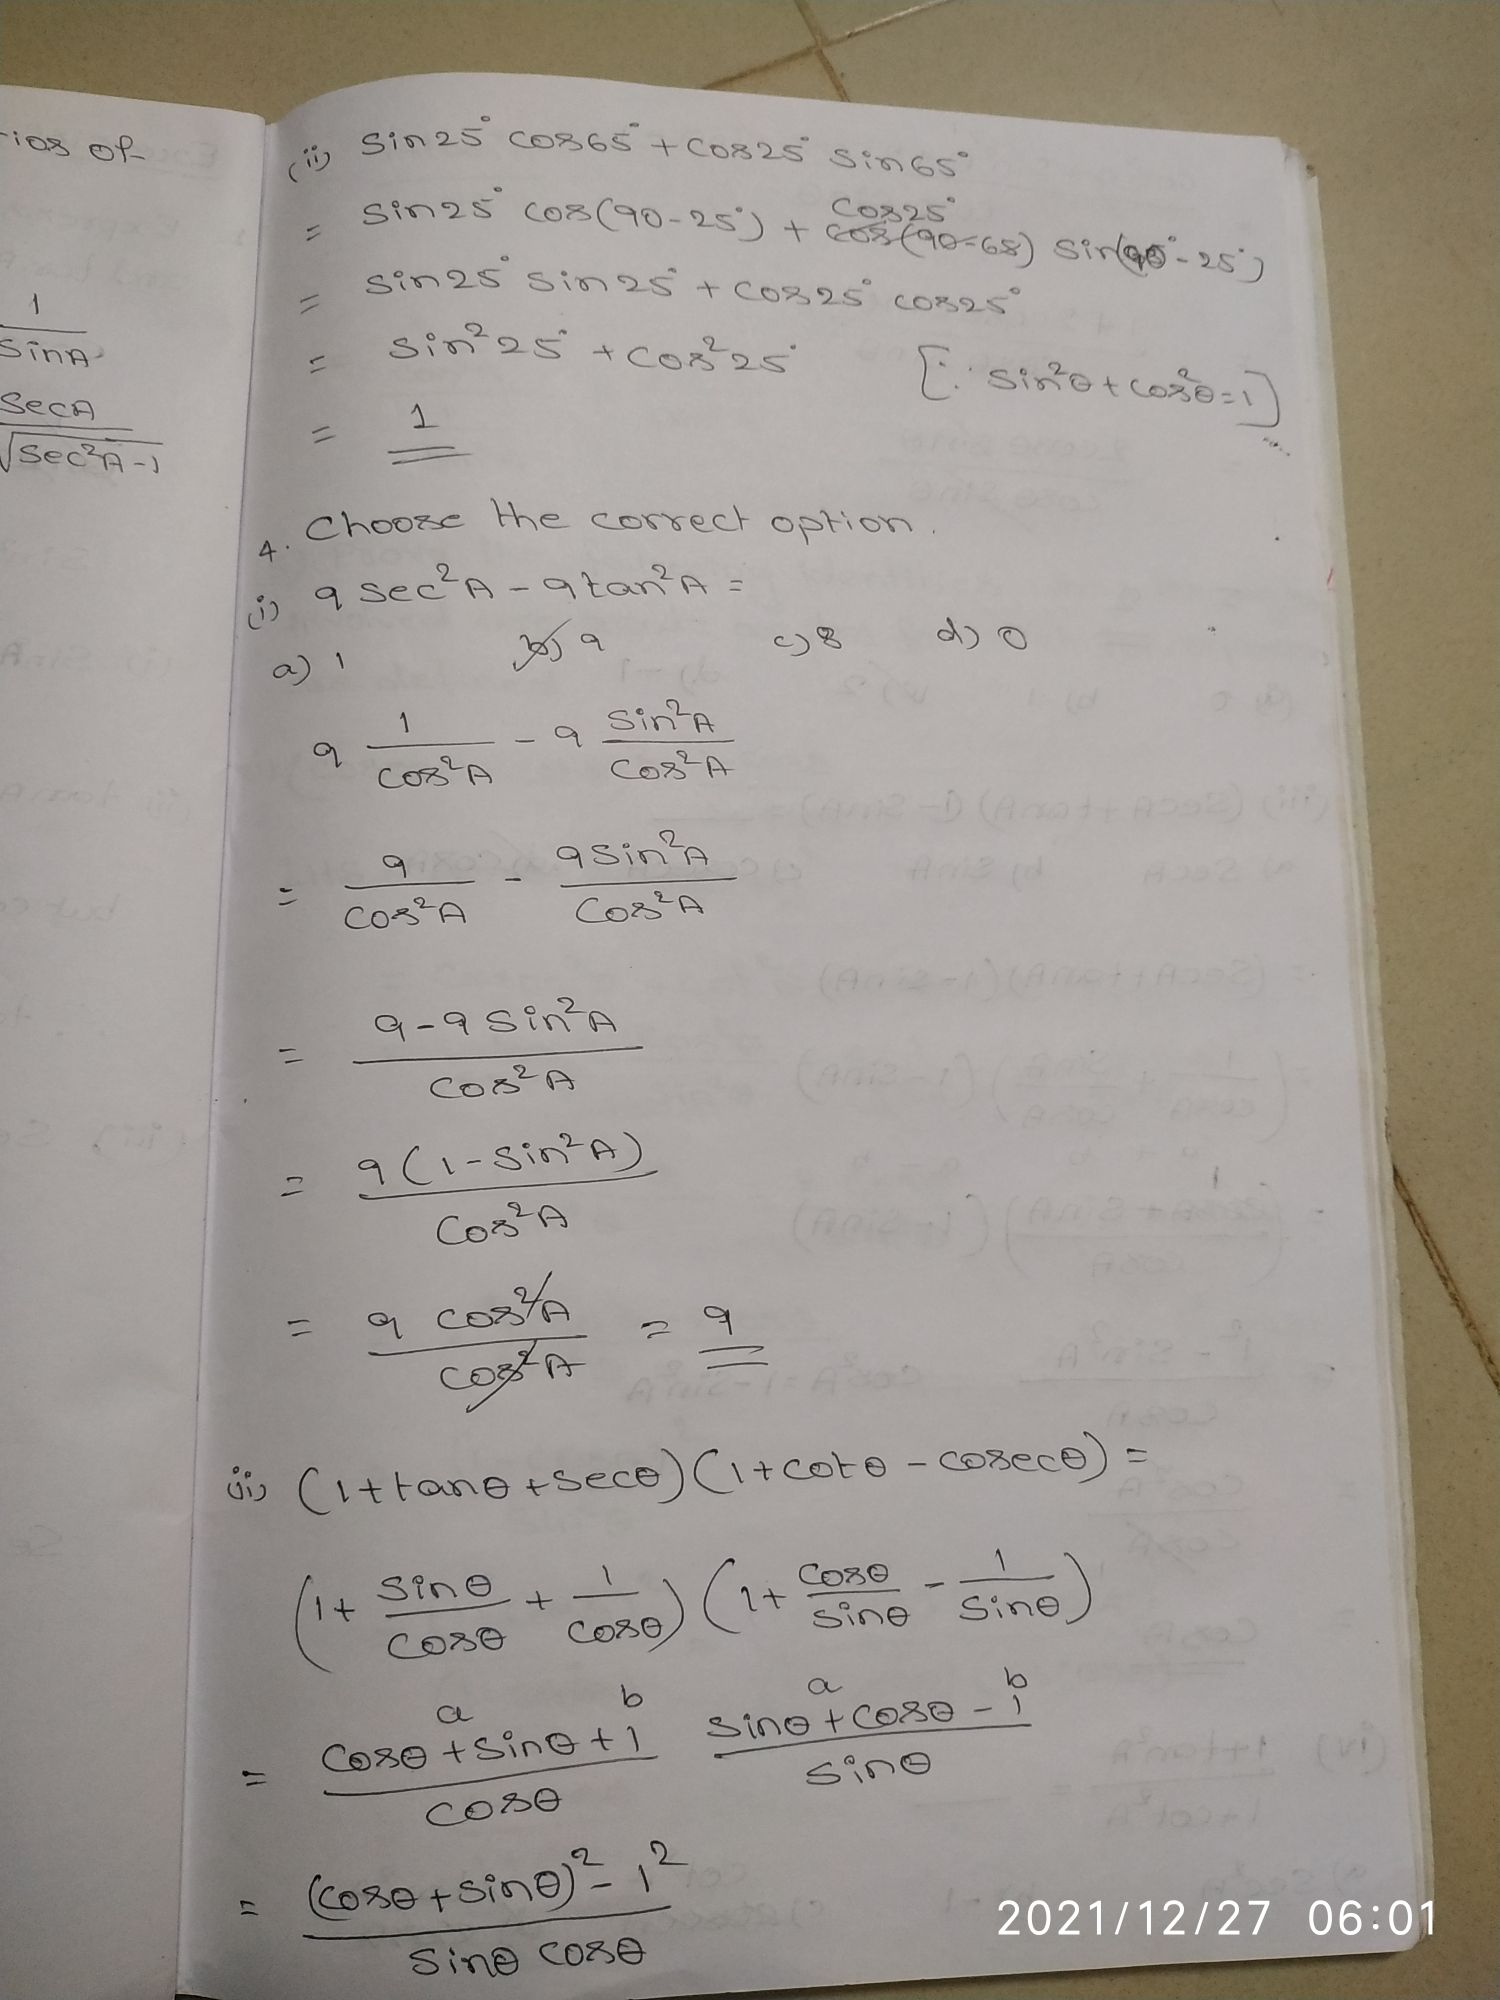 ios of
1
sinA
secA
√sec²A-1
(ii) sin25° cos65° + cos25° sin65°
cos25°
= sin25° cos(90-25°) + cos(90-68) sin(90°-25°)
= sin25° sin25° + cos25° cos25°
= sin²25° + cos²25° [∵ sin²θ+cos²θ=1]
= 1
4. Choose the correct option.
(i) 9 sec²A - 9tan²A =
a) 1 b) 9 c) 8 d) 0
9 1/cos²A - 9 sin²A/cos²A
= 9/cos²A - 9sin²A/cos²A
= 9-9sin²A/cos²A
= 9(1-sin²A)/cos²A
= 9 cos²A/cos²A = 9
ii) (1+tanθ+secθ)(1+cotθ-cosecθ) =
(1+ sinθ/cosθ + 1/cosθ) (1+ cosθ/sinθ - 1/sinθ)
a b a b
= cosθ+sinθ+1/cosθ sinθ+cosθ-1/sinθ
= (cosθ+sinθ)²-1²/sinθ cosθ
2021/12/27 06:01